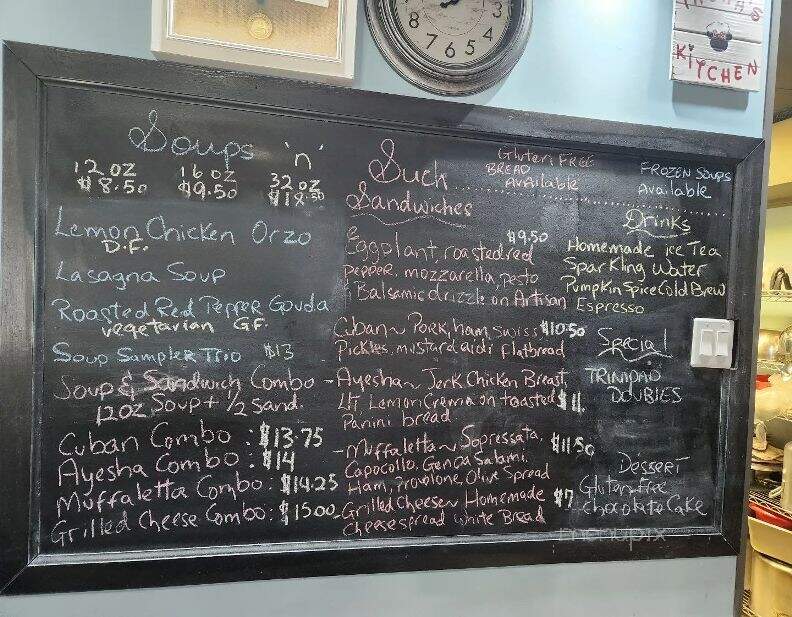 3
8
7
6
5
4
KITCHEN
Soups 'n'
12 OZ
$8.50
16 OZ
$9.50
32 OZ
$18.50
Lemon Chicken Orzo
D.F.
Lasagna Soup
Roasted Red Pepper Gouda
vegetarian GF.
Soup Sampler Trio $13
Soup & Sandwich Combo
12OZ Soup + 1/2 Sand.
Cuban Combo : $13.75
Ayesha Combo : $14
Muffaletta Combo : $14.25
Grilled Cheese Combo : $15.00
Such
Sandwiches
Gluten FREE
BREAD
AvAilable
$9.50
Eggplant, roasted red
pepper, mozzarella, pesto
& Balsamic drizzle on Artisan
Cuban ~ Pork, ham, swiss, $10.50
Pickles, mustard aidi flatbread
- Ayesha ~ Jerk Chicken Breast,
L/T, Lemon Crema on toasted $11.
Panini bread
- Muffaletta ~ Sopressata, $11.50
Capocollo, Genoa Salami,
Ham, Provolone, Olive Spread
- Grilled Cheese ~ Homemade $7
Cheese spread White Bread
FROZEN SOUPS
Available
Drinks
Homemade ice Tea
Sparkling Water
Pumpkin Spice Cold Brew
Espresso
Special
TRINIDAD
DOUBLES
Dessert
Gluten Free
Chocolate Cake
menupix